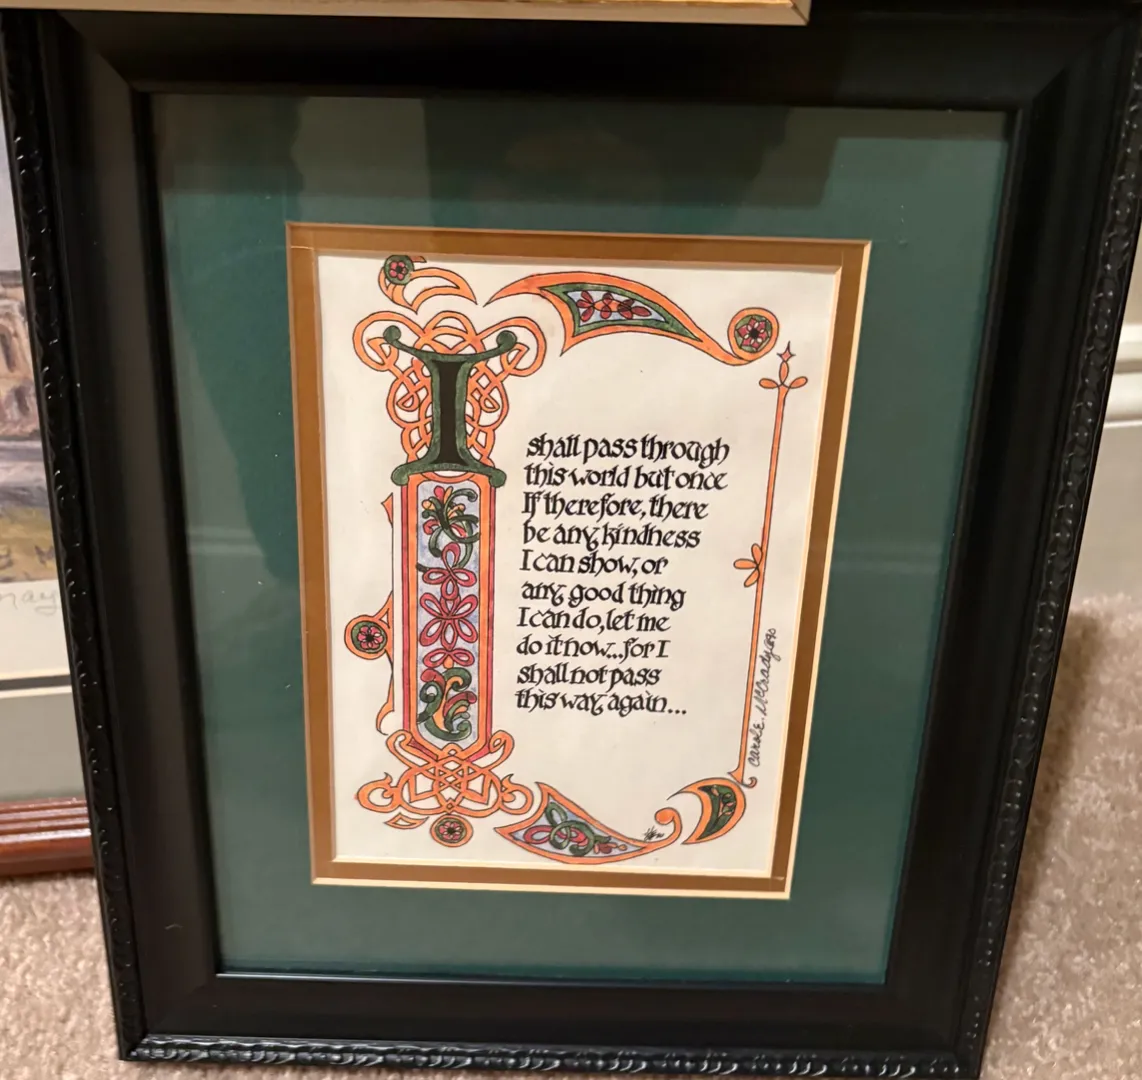 I
shall pass through
this world but once
If therefore, there
be any kindness
I can show, or
any good thing
I can do, let me
do it now...for I
shall not pass
this way, again...
Carol E. McCrady